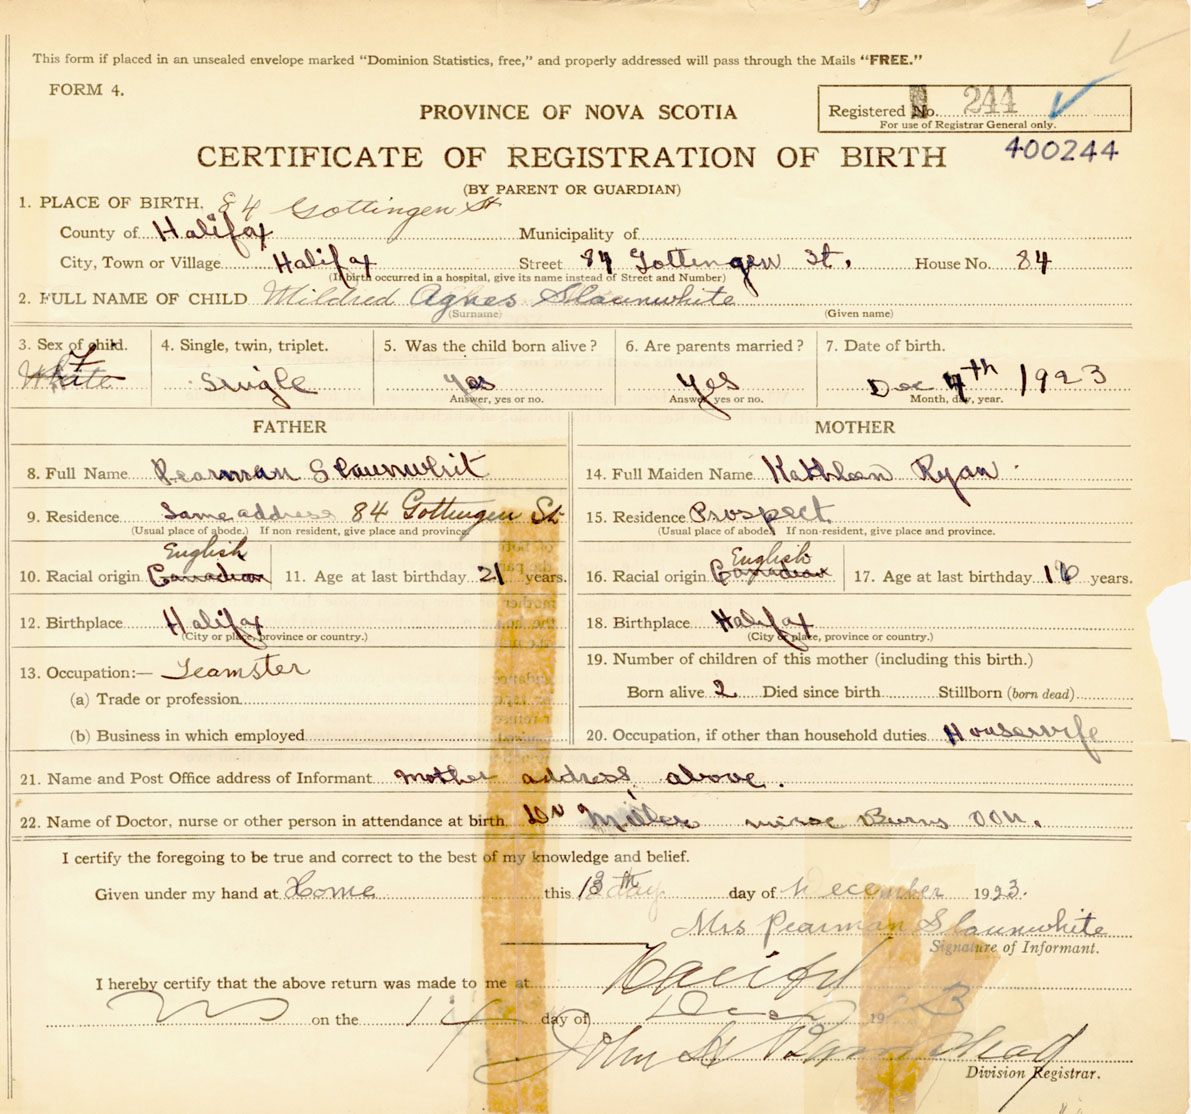 This form if placed in an unsealed envelope marked "Dominion Statistics, free," and properly addressed will pass through the Mails "FREE."
FORM 4.
PROVINCE OF NOVA SCOTIA
Registered No. 244
For use of Registrar General only.
CERTIFICATE OF REGISTRATION OF BIRTH
400244
(BY PARENT OR GUARDIAN)
1. PLACE OF BIRTH. 84 Gottingen St
County of Halifax Municipality of
City, Town or Village Halifax Street 84 Gottingen St. House No. 84
(If birth occurred in a hospital, give its name instead of Street and Number)
2. FULL NAME OF CHILD Mildred Agnes Slaunwhite
(Surname) (Given name)
3. Sex of child. 4. Single, twin, triplet. 5. Was the child born alive? 6. Are parents married? 7. Date of birth.
F
White Single Yes Yes Dec 4th 1923
Answer, yes or no. Answer, yes or no. Month, day, year.
FATHER MOTHER
8. Full Name Pearman Slaunwhit 14. Full Maiden Name Kathleen Ryan
9. Residence Same address 84 Gottingen St 15. Residence Prospect
(Usual place of abode.) If non-resident, give place and province. (Usual place of abode.) If non-resident, give place and province.
English English
10. Racial origin Canadian 11. Age at last birthday 21 years. 16. Racial origin Canadian 17. Age at last birthday years.
12. Birthplace Halifax 18. Birthplace Halifax
(City or place, province or country.) (City or place, province or country.)
13. Occupation:— Teamster 19. Number of children of this mother (including this birth.)
(a) Trade or profession Born alive 2 Died since birth Stillborn (born dead)
(b) Business in which employed 20. Occupation, if other than household duties Housewife
21. Name and Post Office address of Informant Mother address above.
22. Name of Doctor, nurse or other person in attendance at birth Dr Miller nurse Burns VON.
I certify the foregoing to be true and correct to the best of my knowledge and belief.
Given under my hand at Home this 13th day day of December 1923.
Mrs Pearman Slaunwhite
Signature of Informant.
I hereby certify that the above return was made to me at Halifax
on the 14 day of Dec 1923
John
Division Registrar.